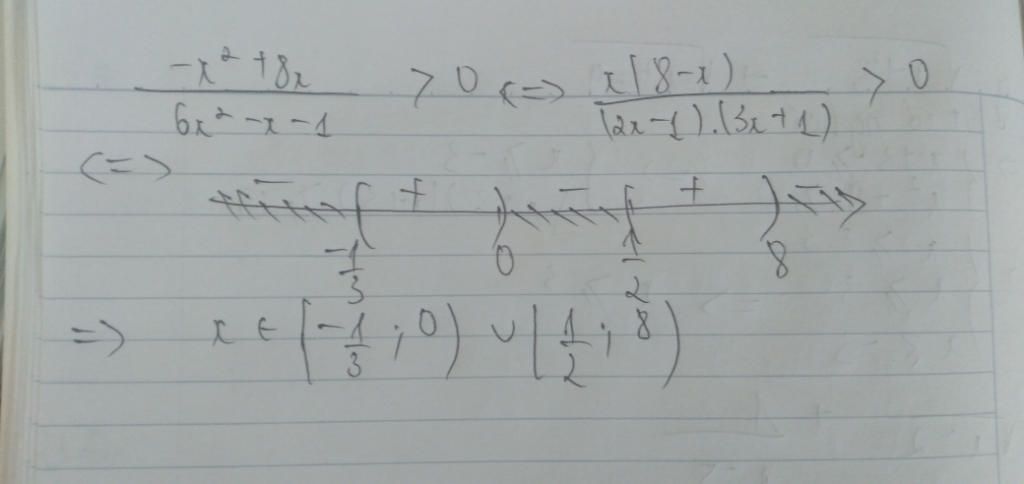 (-x² + 8x)/(6x² - x - 1) > 0 <=> x(8-x)/((2x-1).(3x+1)) > 0
<=>
- + - + -
-1/3 0 1/2 8
=> x ∈ (-1/3 ; 0) ∪ (1/2 ; 8)